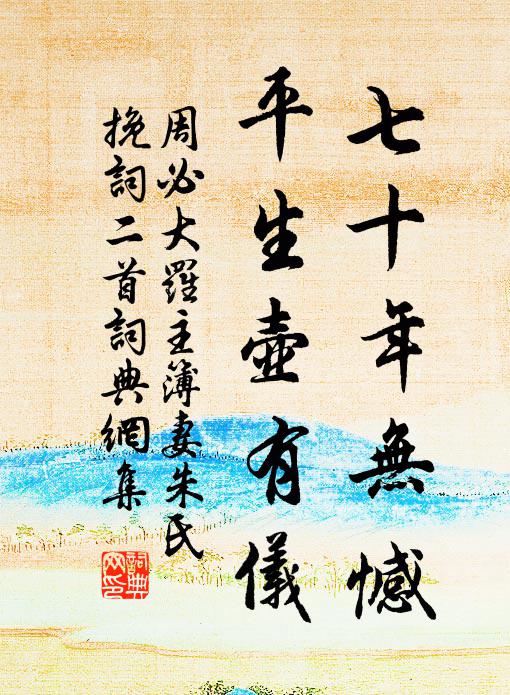 七十年無憾
平生壺有儀
周必大羅主簿妻朱氏
挽詞二首詞典網集
詞典